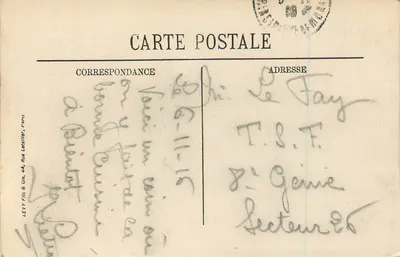 CARTE POSTALE
CORRESPONDANCE
ADRESSE
6-11-15
Voici un coin où
on y fait de la
bonne cuisine
à Bientôt
Le Fay
T. S. F.
8e Génie
Secteur 26
LEVY Fils & Cie, 44, Rue Letellier, Paris